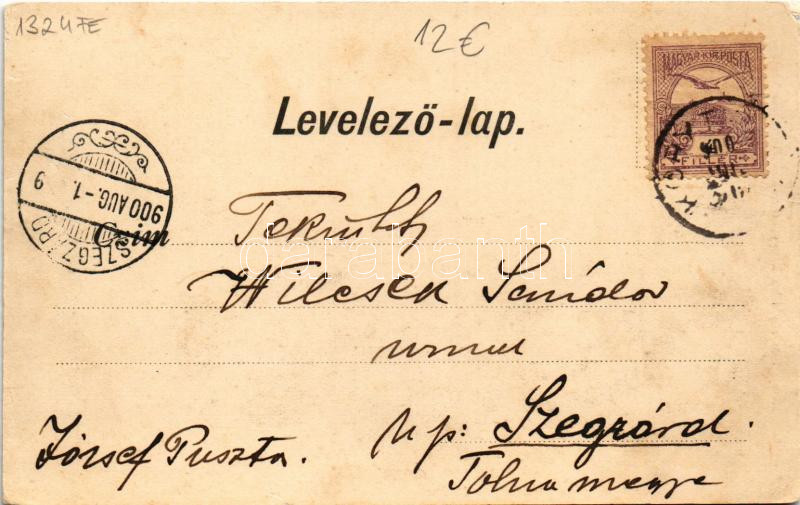 1324FE
12€
MAGYAR KIR. POSTA
FILLÉR
Levelező-lap.
SZEGZÁRD
900 AUG.-1.
9
Czim
Tekintetes
Wilcsek Sándor
urnak
József Puszta.
u p: Szegzárd.
Tolna megye
darabanth